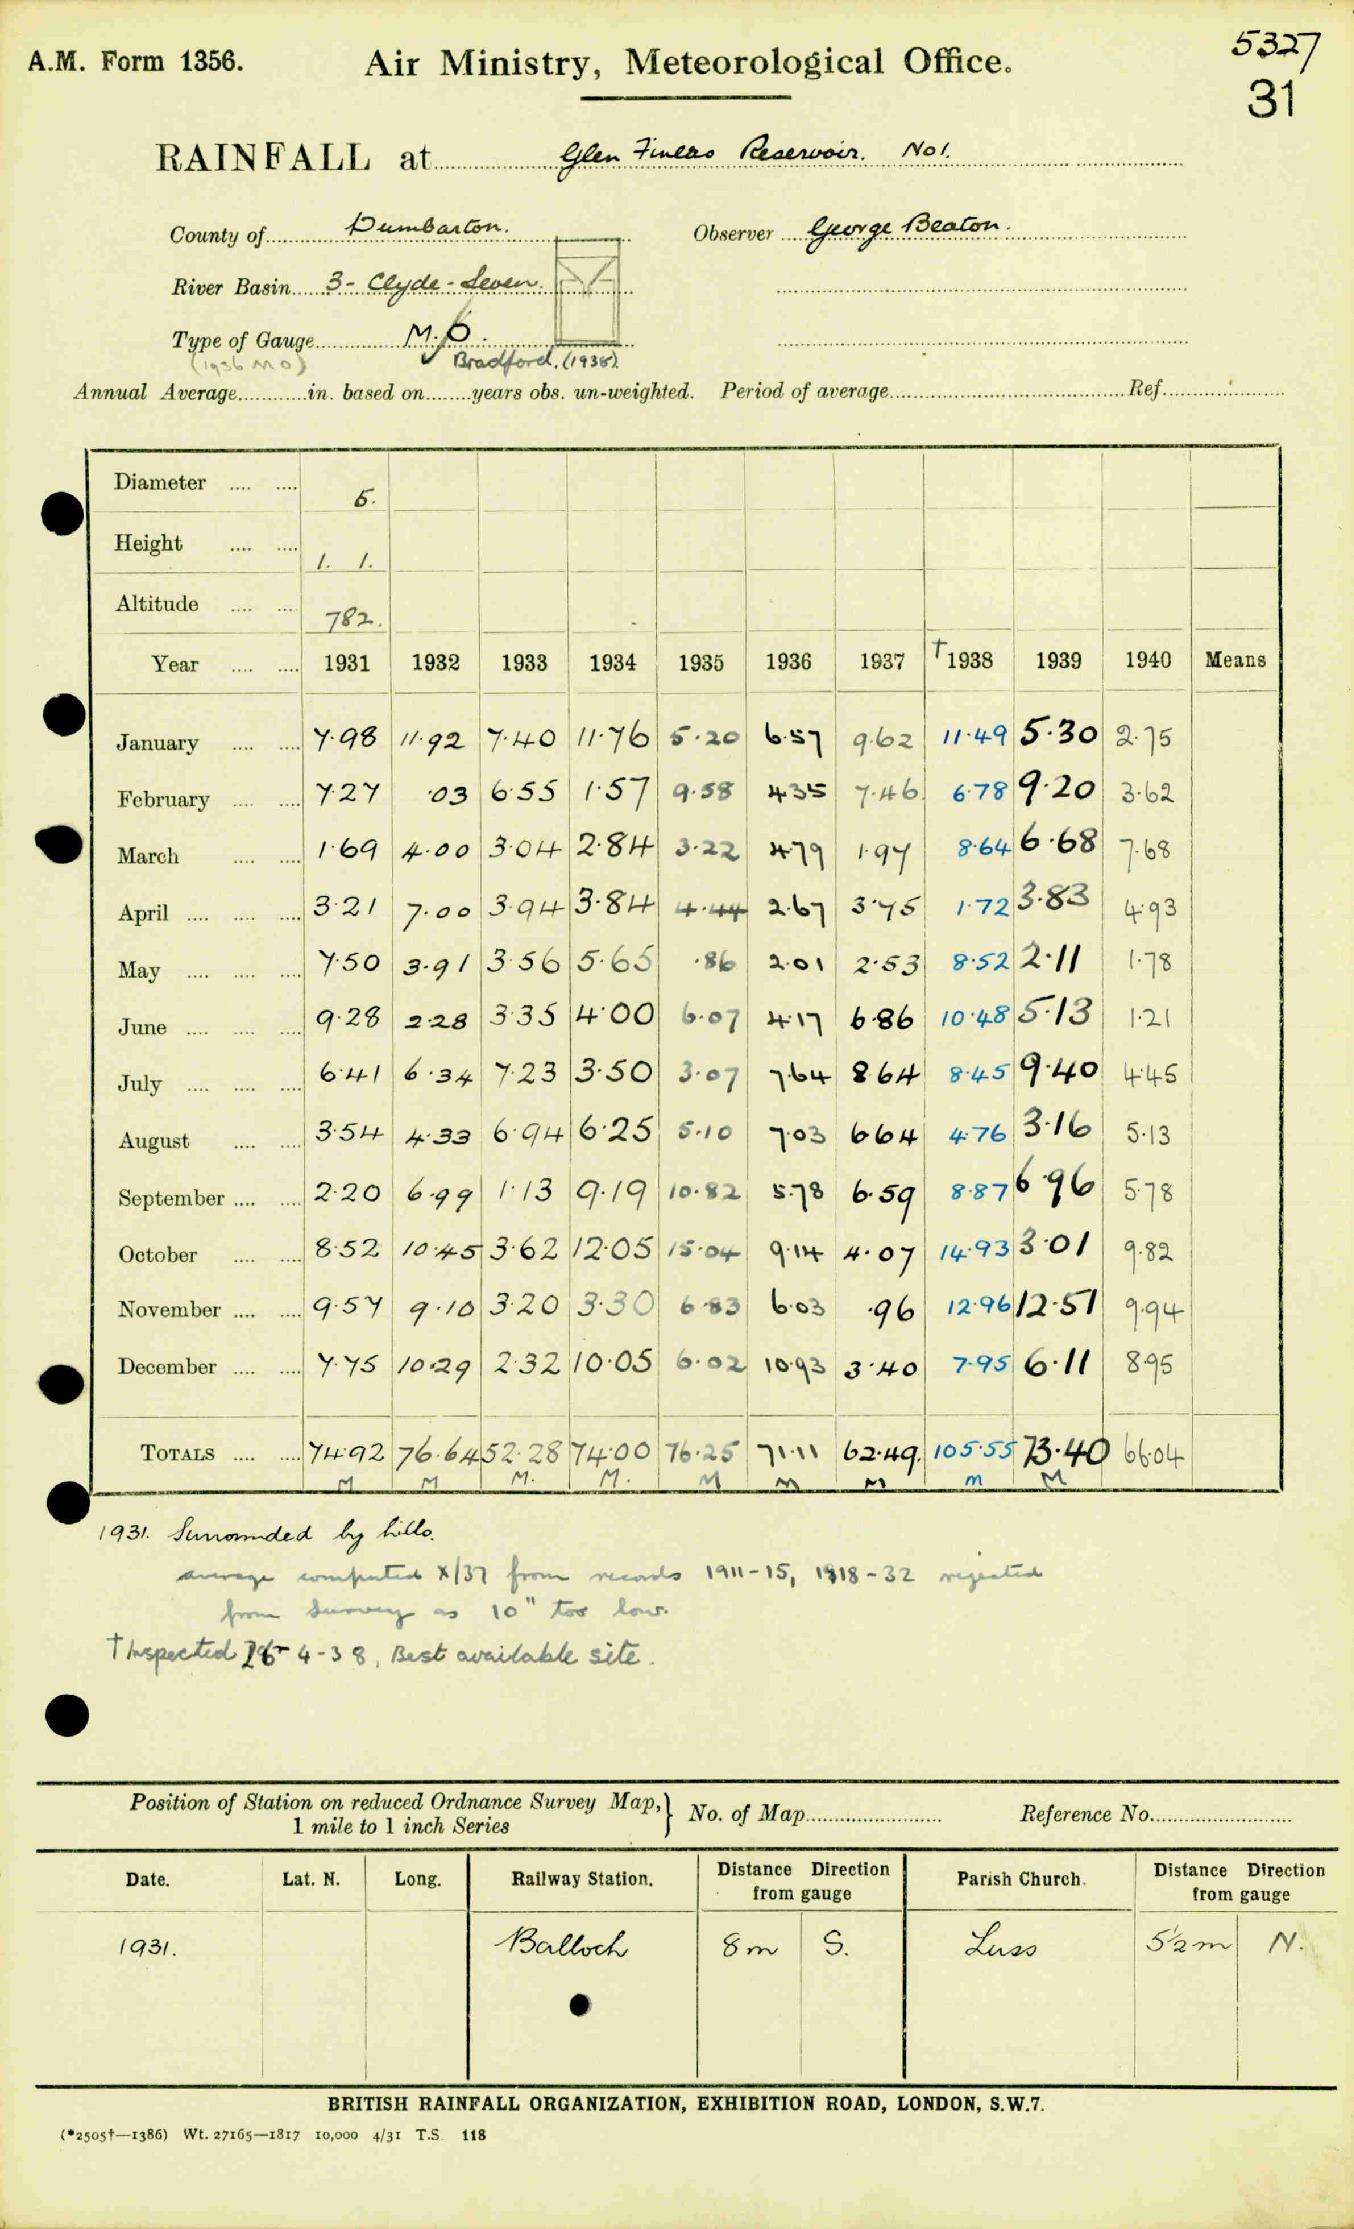 5327
A.M. Form 1356. Air Ministry, Meteorological Office.
31
RAINFALL at Glen Finlas Reservoir. No 1.
County of Dumbarton. Observer George Beaton.
River Basin 3 - Clyde - Leven
Type of Gauge M.O.
(1936 MO) Bradford. (1938)
Annual Average in. based on years obs. un-weighted. Period of average Ref.
Diameter 5.
Height 1. 1.
Altitude 782.
Year 1931 1932 1933 1934 1935 1936 1937 †1938 1939 1940 Means
January 7.98 11.92 7.40 11.76 5.20 6.57 9.62 11.49 5.30 2.75
February 7.27 .03 6.55 1.57 9.58 4.35 7.46 6.78 9.20 3.62
March 1.69 4.00 3.04 2.84 3.22 4.79 1.97 8.64 6.68 7.68
April 3.21 7.00 3.94 3.84 4.44 2.67 3.75 1.72 3.83 4.93
May 7.50 3.91 3.56 5.65 .86 2.01 2.53 8.52 2.11 1.78
June 9.28 2.28 3.35 4.00 6.07 4.17 6.86 10.48 5.13 1.21
July 6.41 6.34 7.23 3.50 3.07 7.64 8.64 8.45 9.40 4.45
August 3.54 4.33 6.94 6.25 5.10 7.03 6.64 4.76 3.16 5.13
September 2.20 6.99 1.13 9.19 10.82 5.78 6.59 8.87 6.96 5.78
October 8.52 10.45 3.62 12.05 15.04 9.14 4.07 14.93 3.01 9.82
November 9.57 9.10 3.20 3.30 6.83 6.03 .96 12.96 12.51 9.94
December 7.75 10.29 2.32 10.05 6.02 10.93 3.40 7.95 6.11 8.95
TOTALS 74.92 76.64 52.28 74.00 76.25 71.11 62.49. 105.55 73.40 66.04
M M M. M. M M M M M
1931. Surrounded by hills.
average computed X/37 from records 1911-15, 1918-32 rejected
from Survey as 10" too low.
† Inspected 4-38, Best available site.
Position of Station on reduced Ordnance Survey Map, } No. of Map Reference No.
1 mile to 1 inch Series
Date. Lat. N. Long. Railway Station. Distance Direction from gauge Parish Church. Distance Direction from gauge
1931. Balloch 8m S. Luss 5½m N.
BRITISH RAINFALL ORGANIZATION, EXHIBITION ROAD, LONDON, S.W.7.
(*2505†—1386) Wt. 27165—1817 10,000 4/31 T.S. 118